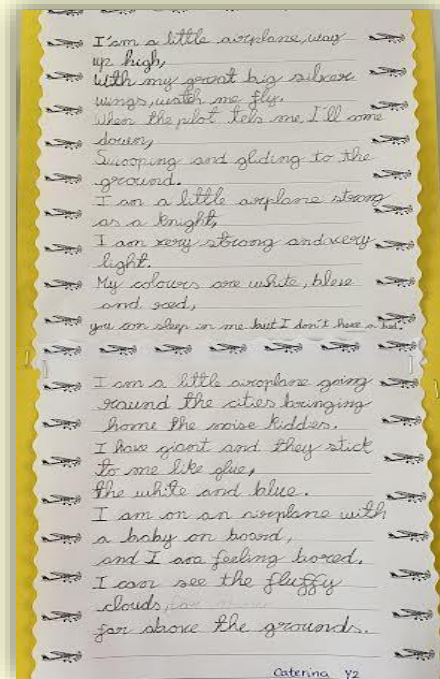 I'am a little airplane, way
up high,
With my great big silver
wings, watch me fly.
When the pilot tels me, I'll come
down,
Swooping and gliding to the
ground.
I am a little airplane strong
as a knight,
I am very strong and very
light.
My colours are white, blue
and red,
you can sleep in me but I don't have a bed.
I am a little airoplane going
round the cities bringing
home the noise kiddies.
I have giant and they stick
to me like glue,
the white and blue.
I am on an airoplane with
a baby on board,
and I am feeling bored.
I can see the fluffy
clouds,
far above the grounds.
Caterina Y2